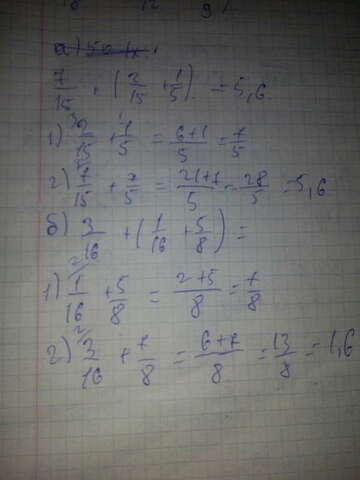 7/15 + (2/15 + 1/5) = 5,6
1) 2/15 + 1/5 = 6+1/5 = 7/5
2) 7/15 + 7/5 = 21+7/5 = 28/5 = 5,6
б) 3/16 + (1/16 + 5/8) =
1) 1/16 + 5/8 = 2+5/8 = 7/8
2) 3/16 + 7/8 = 6+7/8 = 13/8 = 1,6